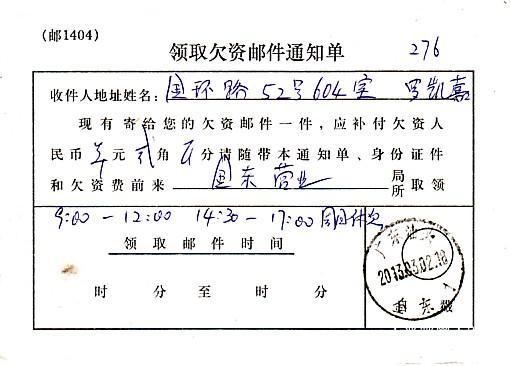 (邮1404)
领取欠资邮件通知单 276
收件人地址姓名:园环路52号604室 罗凯嘉
现有寄给您的欠资邮件一件,应补付欠资人
民币 元贰角 分请随带本通知单、身份证件
和欠资费前来 园东营业 局所 取领
9:00-12:00 14:30-17:00 周日休
领取邮件时间
时 分至 时 分
广东
2013.03.02.18
东